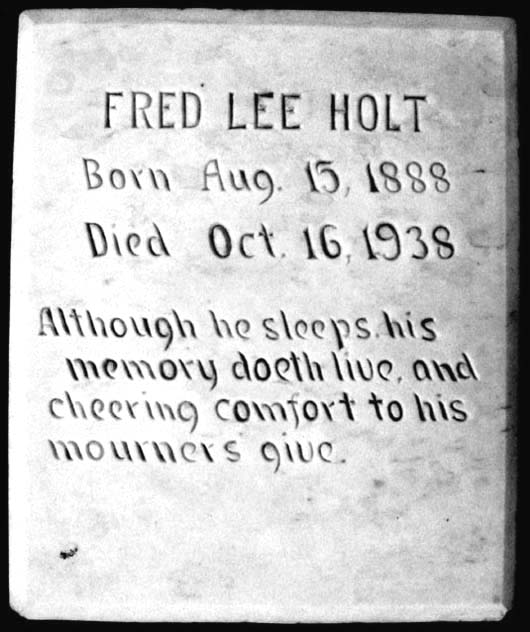 FRED LEE HOLT
Born Aug. 15, 1888
Died Oct. 16, 1938
Although he sleeps, his
memory doeth live, and
cheering comfort to his
mourners give.